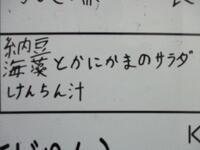 納豆
海藻とかにかまのサラダ
けんちん汁
K